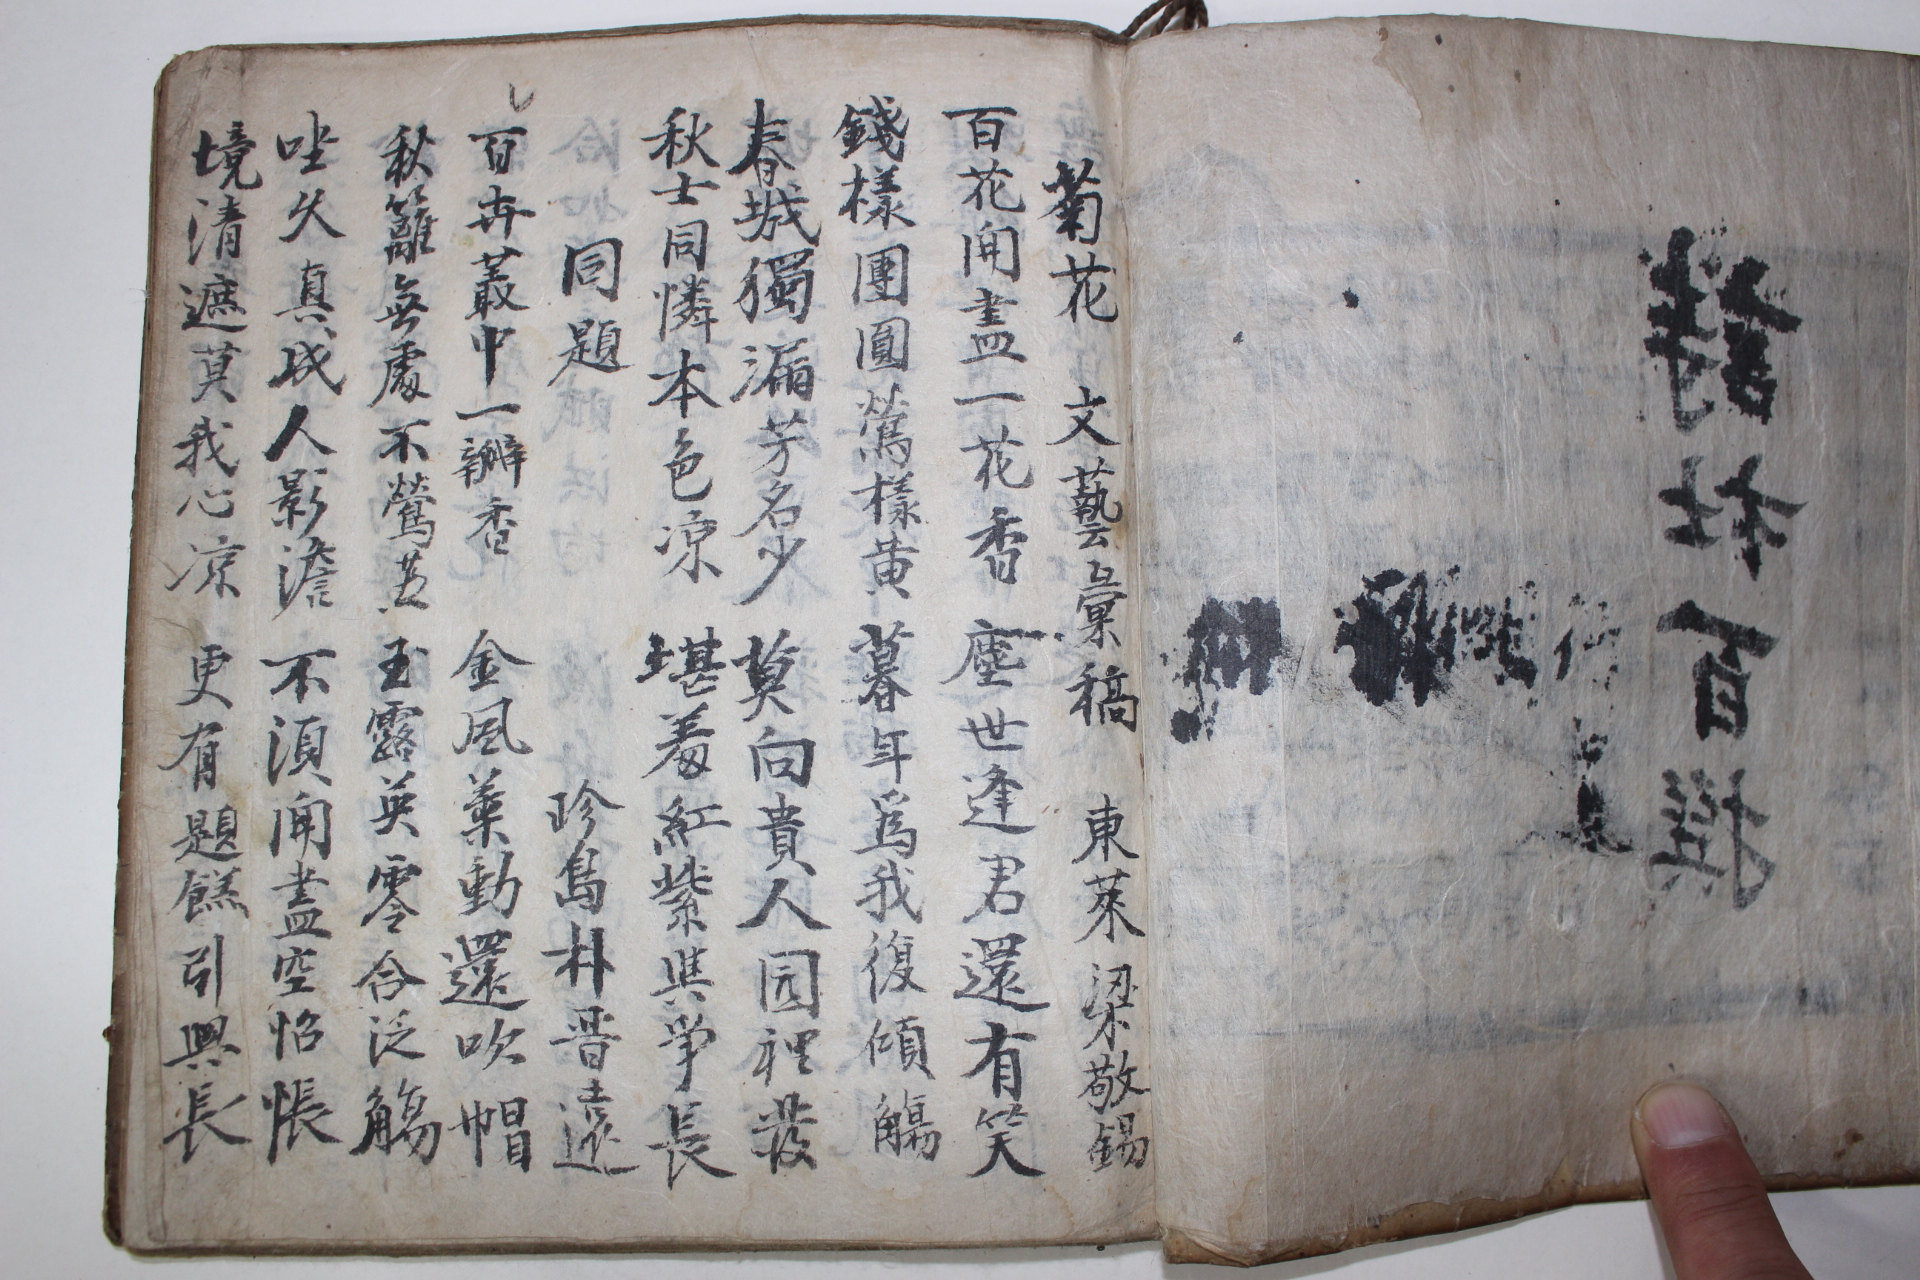 詩社百撰
菊花 文藝彙稿 東萊 梁敬錫
百花開盡一花香 塵世逢君還有笑
錢樣團圓鶯樣黃 暮年爲我復傾觴
春城獨漏芳名少 莫向貴人园裡發
秋士同憐本色凉 堪羞紅紫與爭長
同題 珍島朴晋遠
百卉叢中一瓣香 金風葉動還吹帽
秋籬無處不鶯黃 玉露英零合泛觴
坐久真成人影澹 不須開盡空怊悵
境清遮莫我心凉 更有題餻引興長